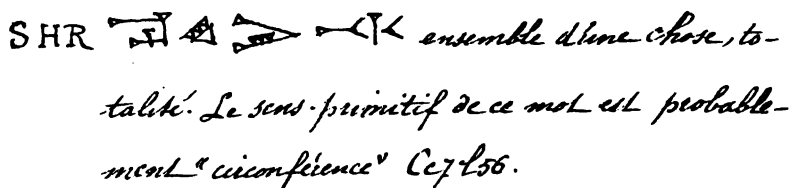 SHR ensemble d'une chose, to-
talité. Le sens primitif de ce mot est probable-
ment "circonférence" Cc7l56.